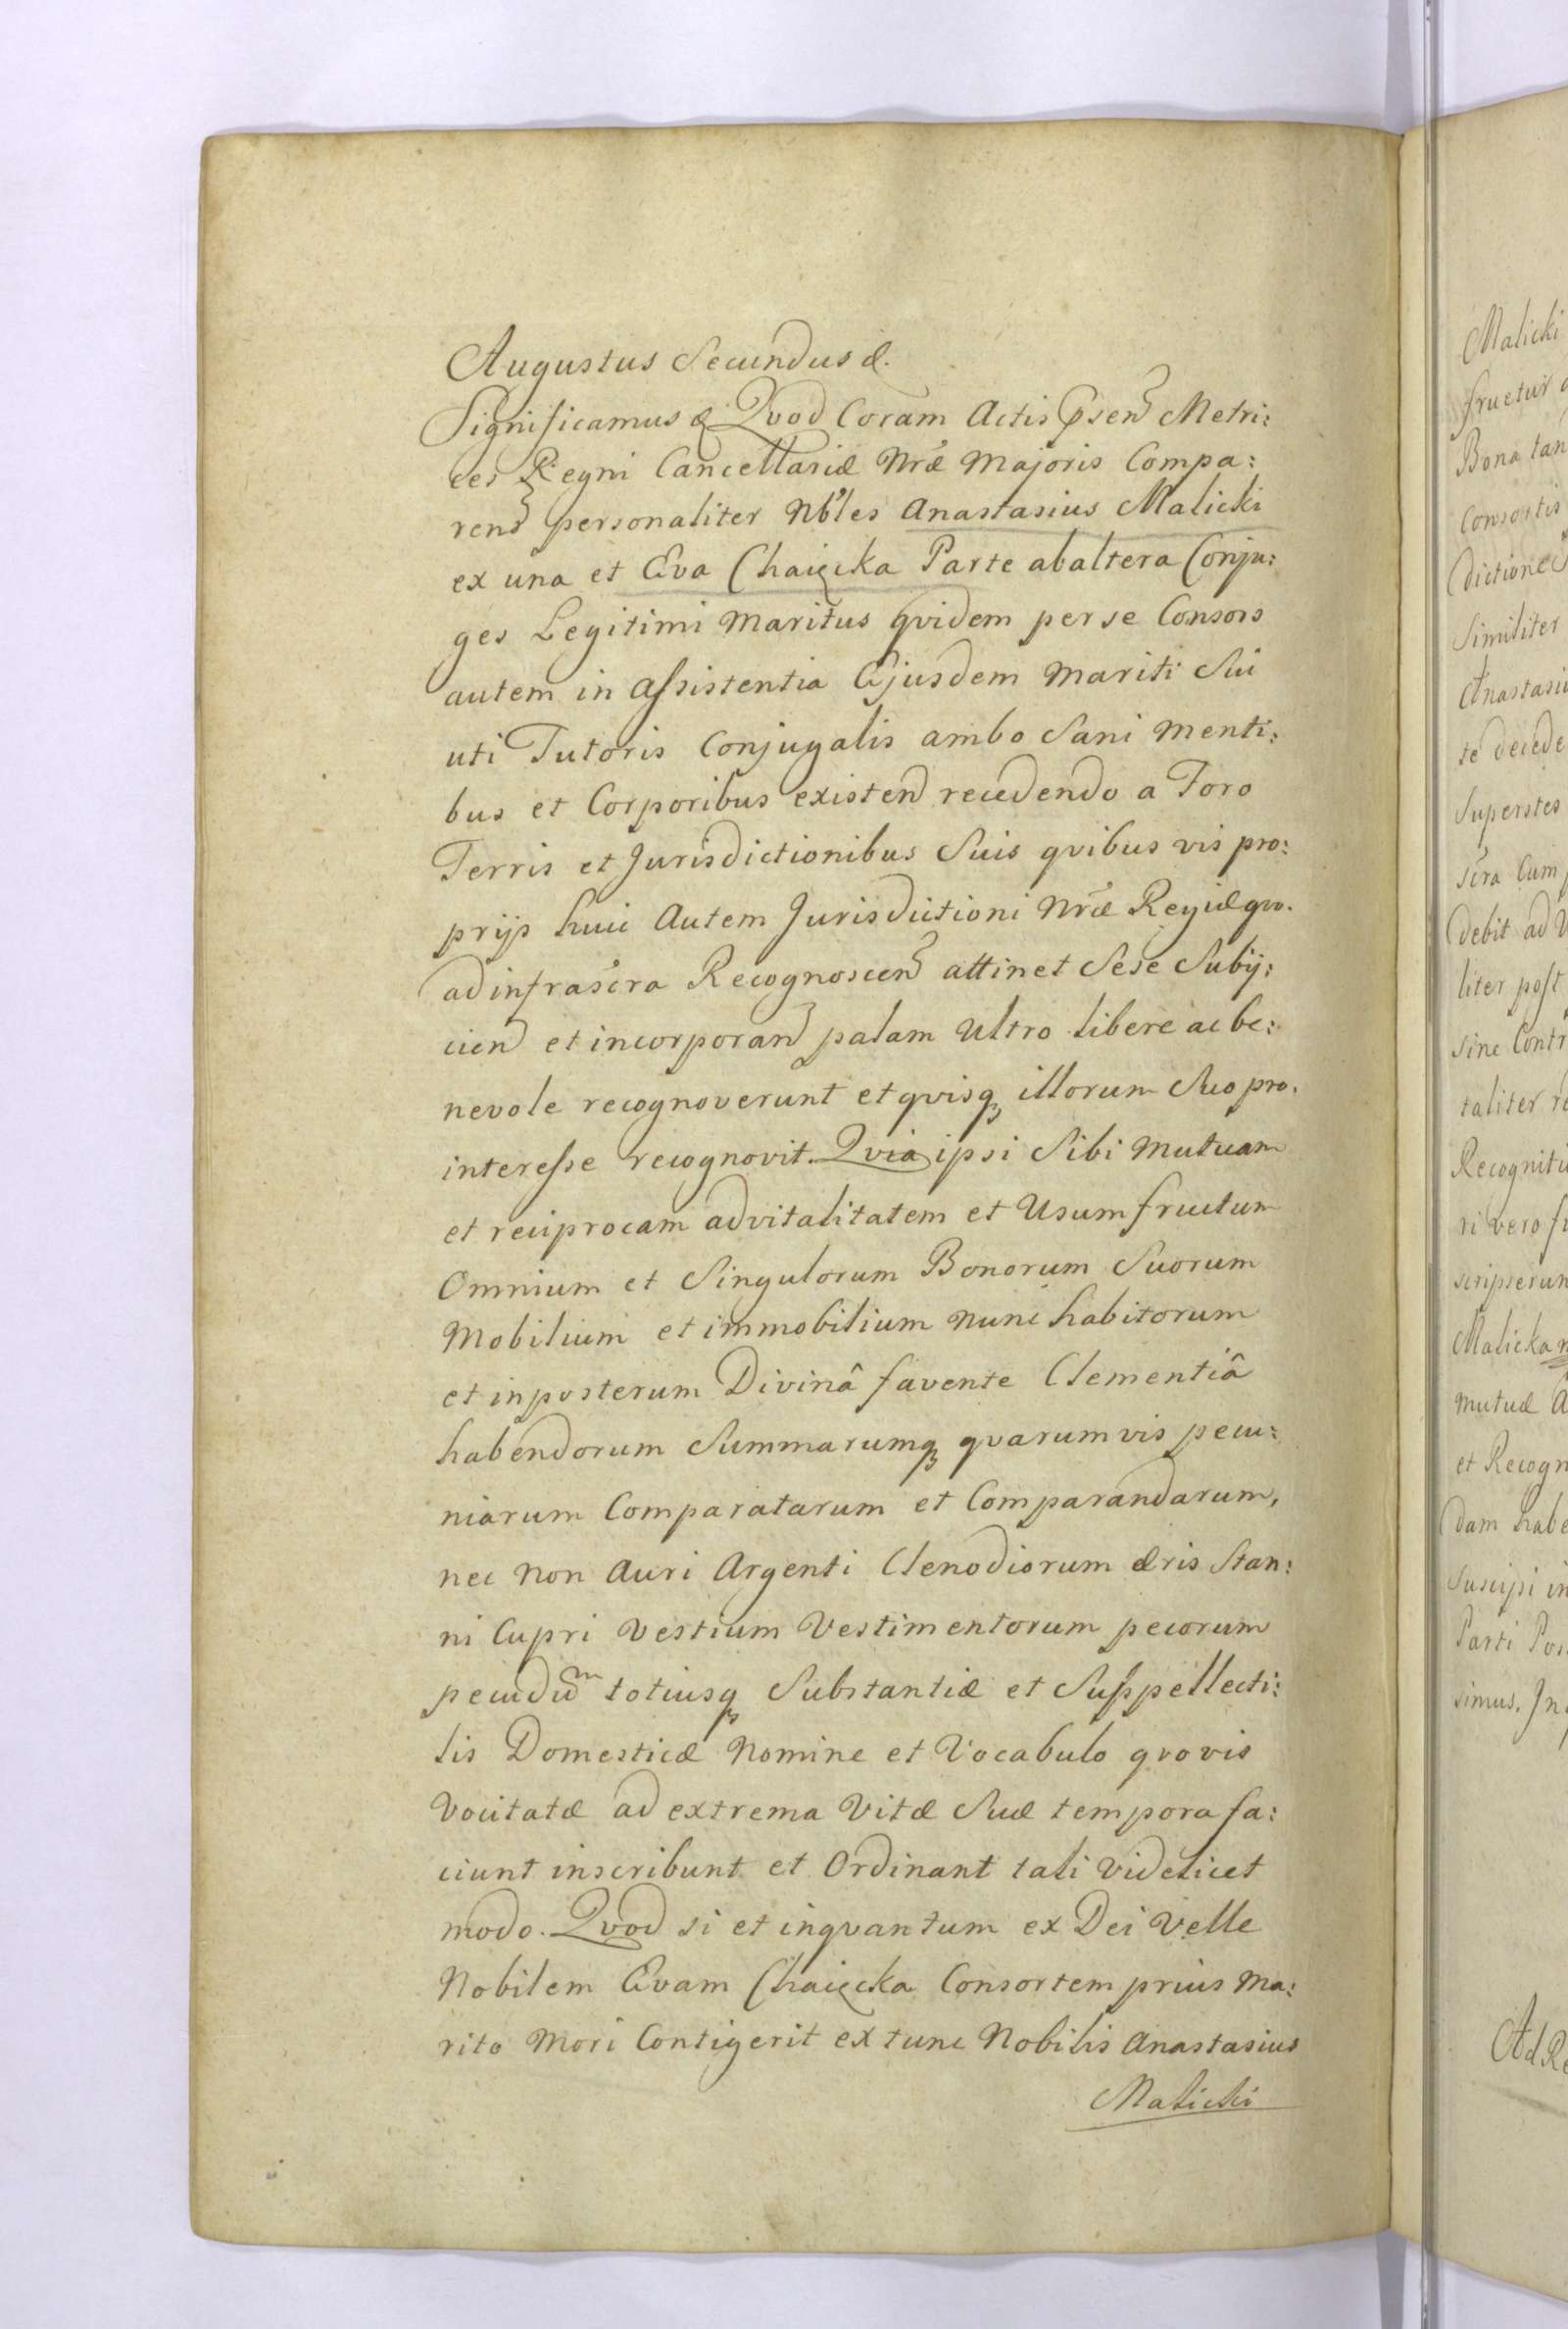 Augustus Secundus &.
Significamus & Qvod Coram Actis Psen Metri:
ces Regni Cancellariæ Nræ Majoris Compa:
ren personaliter Nbles Anastasius Malicki
ex una et Eva Chaięcka Parte ab altera Conju:
ges Legitimi Maritus qvidem per se Consors
autem in Assistentia Ejusdem Mariti Sui
uti Tutoris Conjugalis ambo Sani Menti:
bus et Corporibus existen recedendo a Foro
Terris et Jurisdictionibus Suis qvibus vis pro:
prijs huic Autem Jurisdictioni Nræ Regiæ qvo.
ad infrascra Recognoscen attinet Sese Subij:
cien et incorporan palam Ultro libere ac be:
nevole recognoverunt et qvisq illorum Suo pro.
interesse recognovit. Qvia ipsi Sibi Mutuam
et reciprocam advitalitatem et Usumfructum
Omnium et Singulorum Bonorum Suorum
Mobilium et immobilium nunc habitorum
et inposterum Divinâ favente Clementiâ
habendorum Summarumq qvarumvis pecu:
niarum Comparatarum et Comparandarum,
nec non Auri Argenti Clenodiorum æris Stan:
ni Cupri Vestium Vestimentorum pecorum
pecudum totiusq Substantiæ et Suppellecti:
lis Domesticæ Nomine et Vocabulo qvovis
Vocitatæ ad extrema Vitæ Suæ tempora fa:
ciunt inscribunt et Ordinant tali Videlicet
modo. Qvod si et inqvantum ex Dei Velle
Nobilem Evam Chaięcka Consortem prius Ma:
rito Mori Contigerit ex tunc Nobilis Anastasius
Malicki
Malicki
fruetur
Bona tan
Consortis
dictione
Similiter
Anastasiu
te decede
Superstes
scra Cum
debit ad
liter post
sine Contr
taliter
Recognitu
ri vero
scripserun
Malicka
Mutuæ
et Recogn
dam habe
Suscipi in
Parti
simus. In
Ad Re